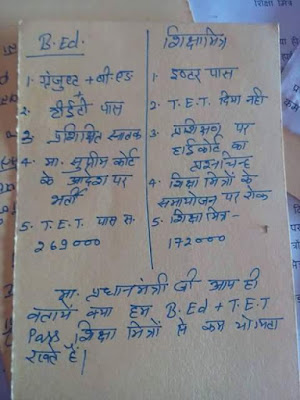 B.Ed.
1. ग्रेजुएट + बी-एड
+
2. टीईटी पास
3. प्रशिक्षित स्नातक
4. मा. सुप्रीम कोर्ट
के आदेश पर
भर्ती
5. T.E.T. पास सं.
269000
शिक्षामित्र
1. इण्टर पास
2. T.E.T. दिया नहीं
3. प्रशिक्षण पर
हाईकोर्ट का
प्रश्नचिन्ह
4. शिक्षा मित्रों के
समायोजन पर रोक
5. शिक्षामित्र -
172000
मा. प्रधानमंत्री जी आप ही
बतायें क्या हम B.Ed + T.E.T
Pass शिक्षा मित्रों से कम योग्यता
रखते हैं।